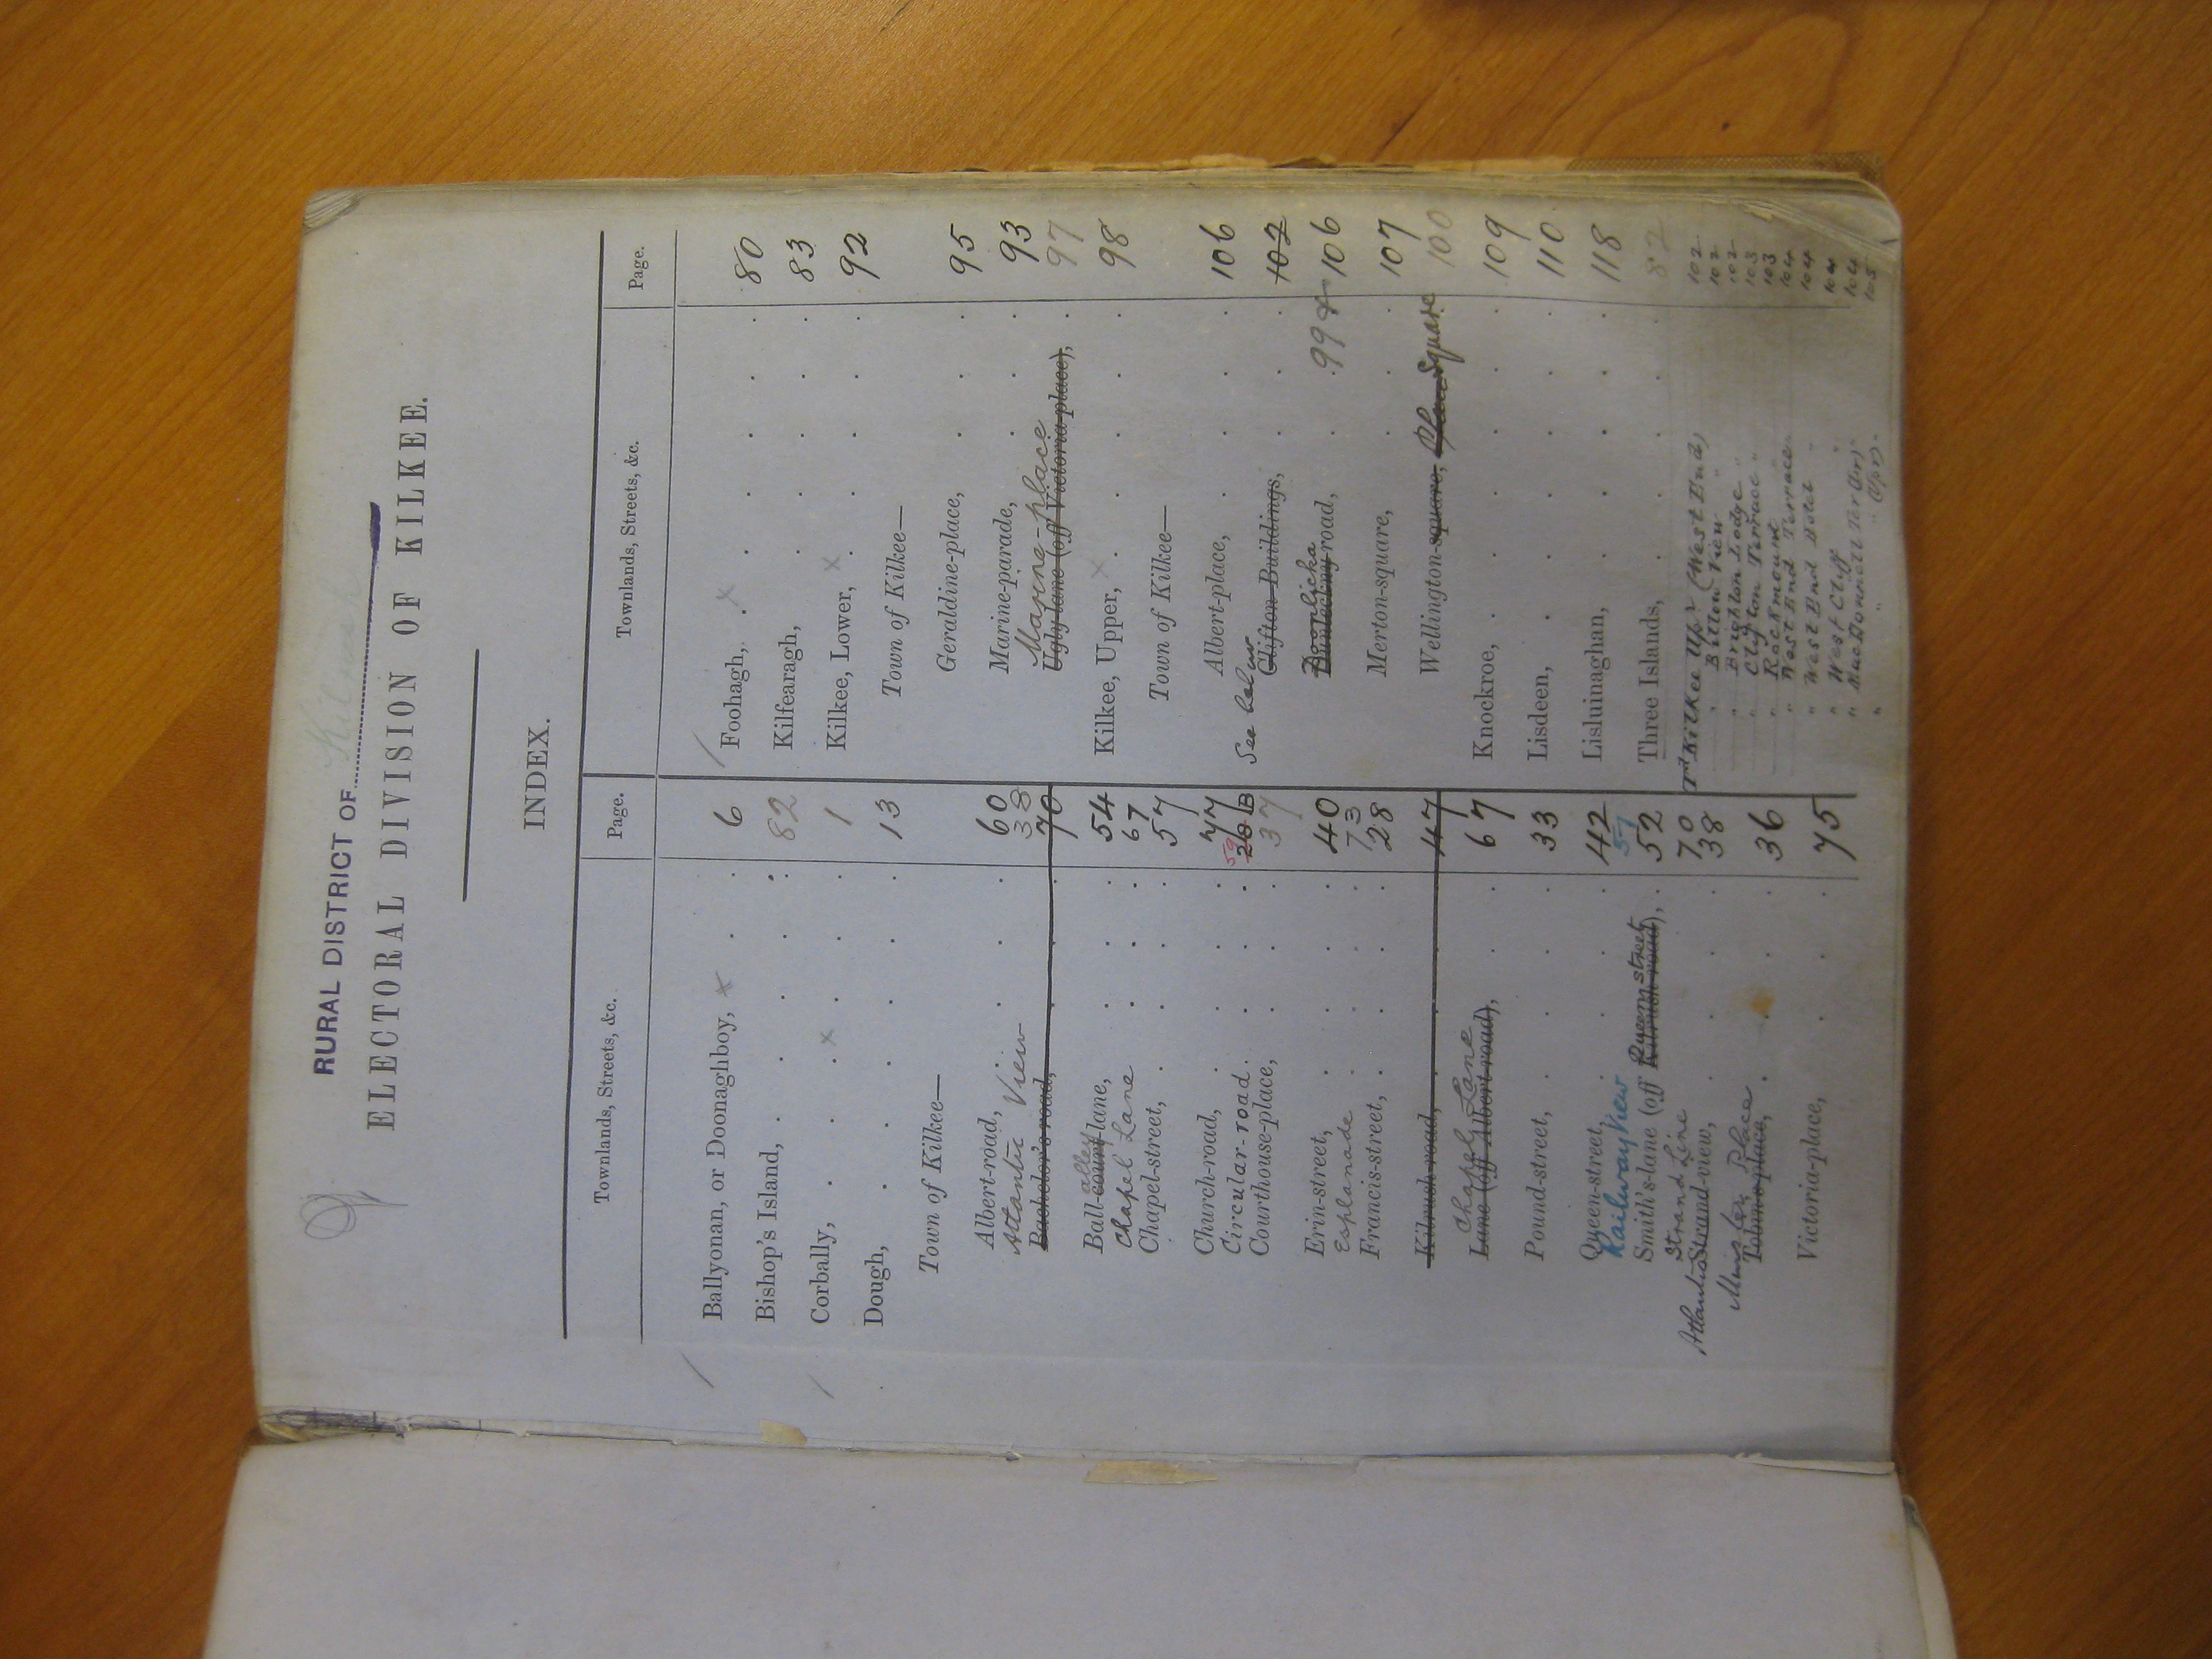 RURAL DISTRICT OF Kilrush
ELECTORAL DIVISION OF KILKEE.
INDEX.
Townlands, Streets, &c. Page.
Ballyonan, or Doonaghboy, x 6
Bishop's Island, 82
Corbally, x 1
Dough, 13
Town of Kilkee—
Albert-road, 60
Atlantic View 38
Bachelor's road, 70
Ball-court alley lane, 54
Chapel Lane 67
Chapel-street, 57
Church-road, 77
Circular-road. 59 28 B
Courthouse-place, 37
Erin-street, 40
Esplanade 73
Francis-street, 28
Kilrush-road, 47
Chapel Lane
Lane (off Albert-road), 67
Pound-street, 33
Queen-street, 42
Railway View 57
Smith's-lane (off Kilrush-road), Queen street 52
Strand Line 70
Atlantic Strand-view, 38
Munster Place
Tobins-place, 36
Victoria-place, 75
Townlands, Streets, &c. Page.
Foohagh, x 80
Kilfearagh, 83
Kilkee, Lower, x 92
Town of Kilkee—
Geraldine-place, 95
Marine-parade, 93
Marine-place 97
Ugly-lane (off Victoria-place),
Kilkee, Upper, x 98
Town of Kilkee—
Albert-place, 106
See below
Clifton-Buildings, 102
Doonlicka
road, 99 & 106
Merton-square, 107
Wellington-square, Square 100
Knockroe, 109
Lisdeen, 110
Lisluinaghan, 118
Three Islands, 82
Kilkee Upr (West End) 102
" Billow View " 102
" Brighton Lodge " 102
" Clifton Terrace " 103
" Rockmount " 103
" West End Terrace 104
" West End Hotel " 104
" West Cliff " 104
" MacDonnell Ter (lr) 104
" " " (Upr) 105